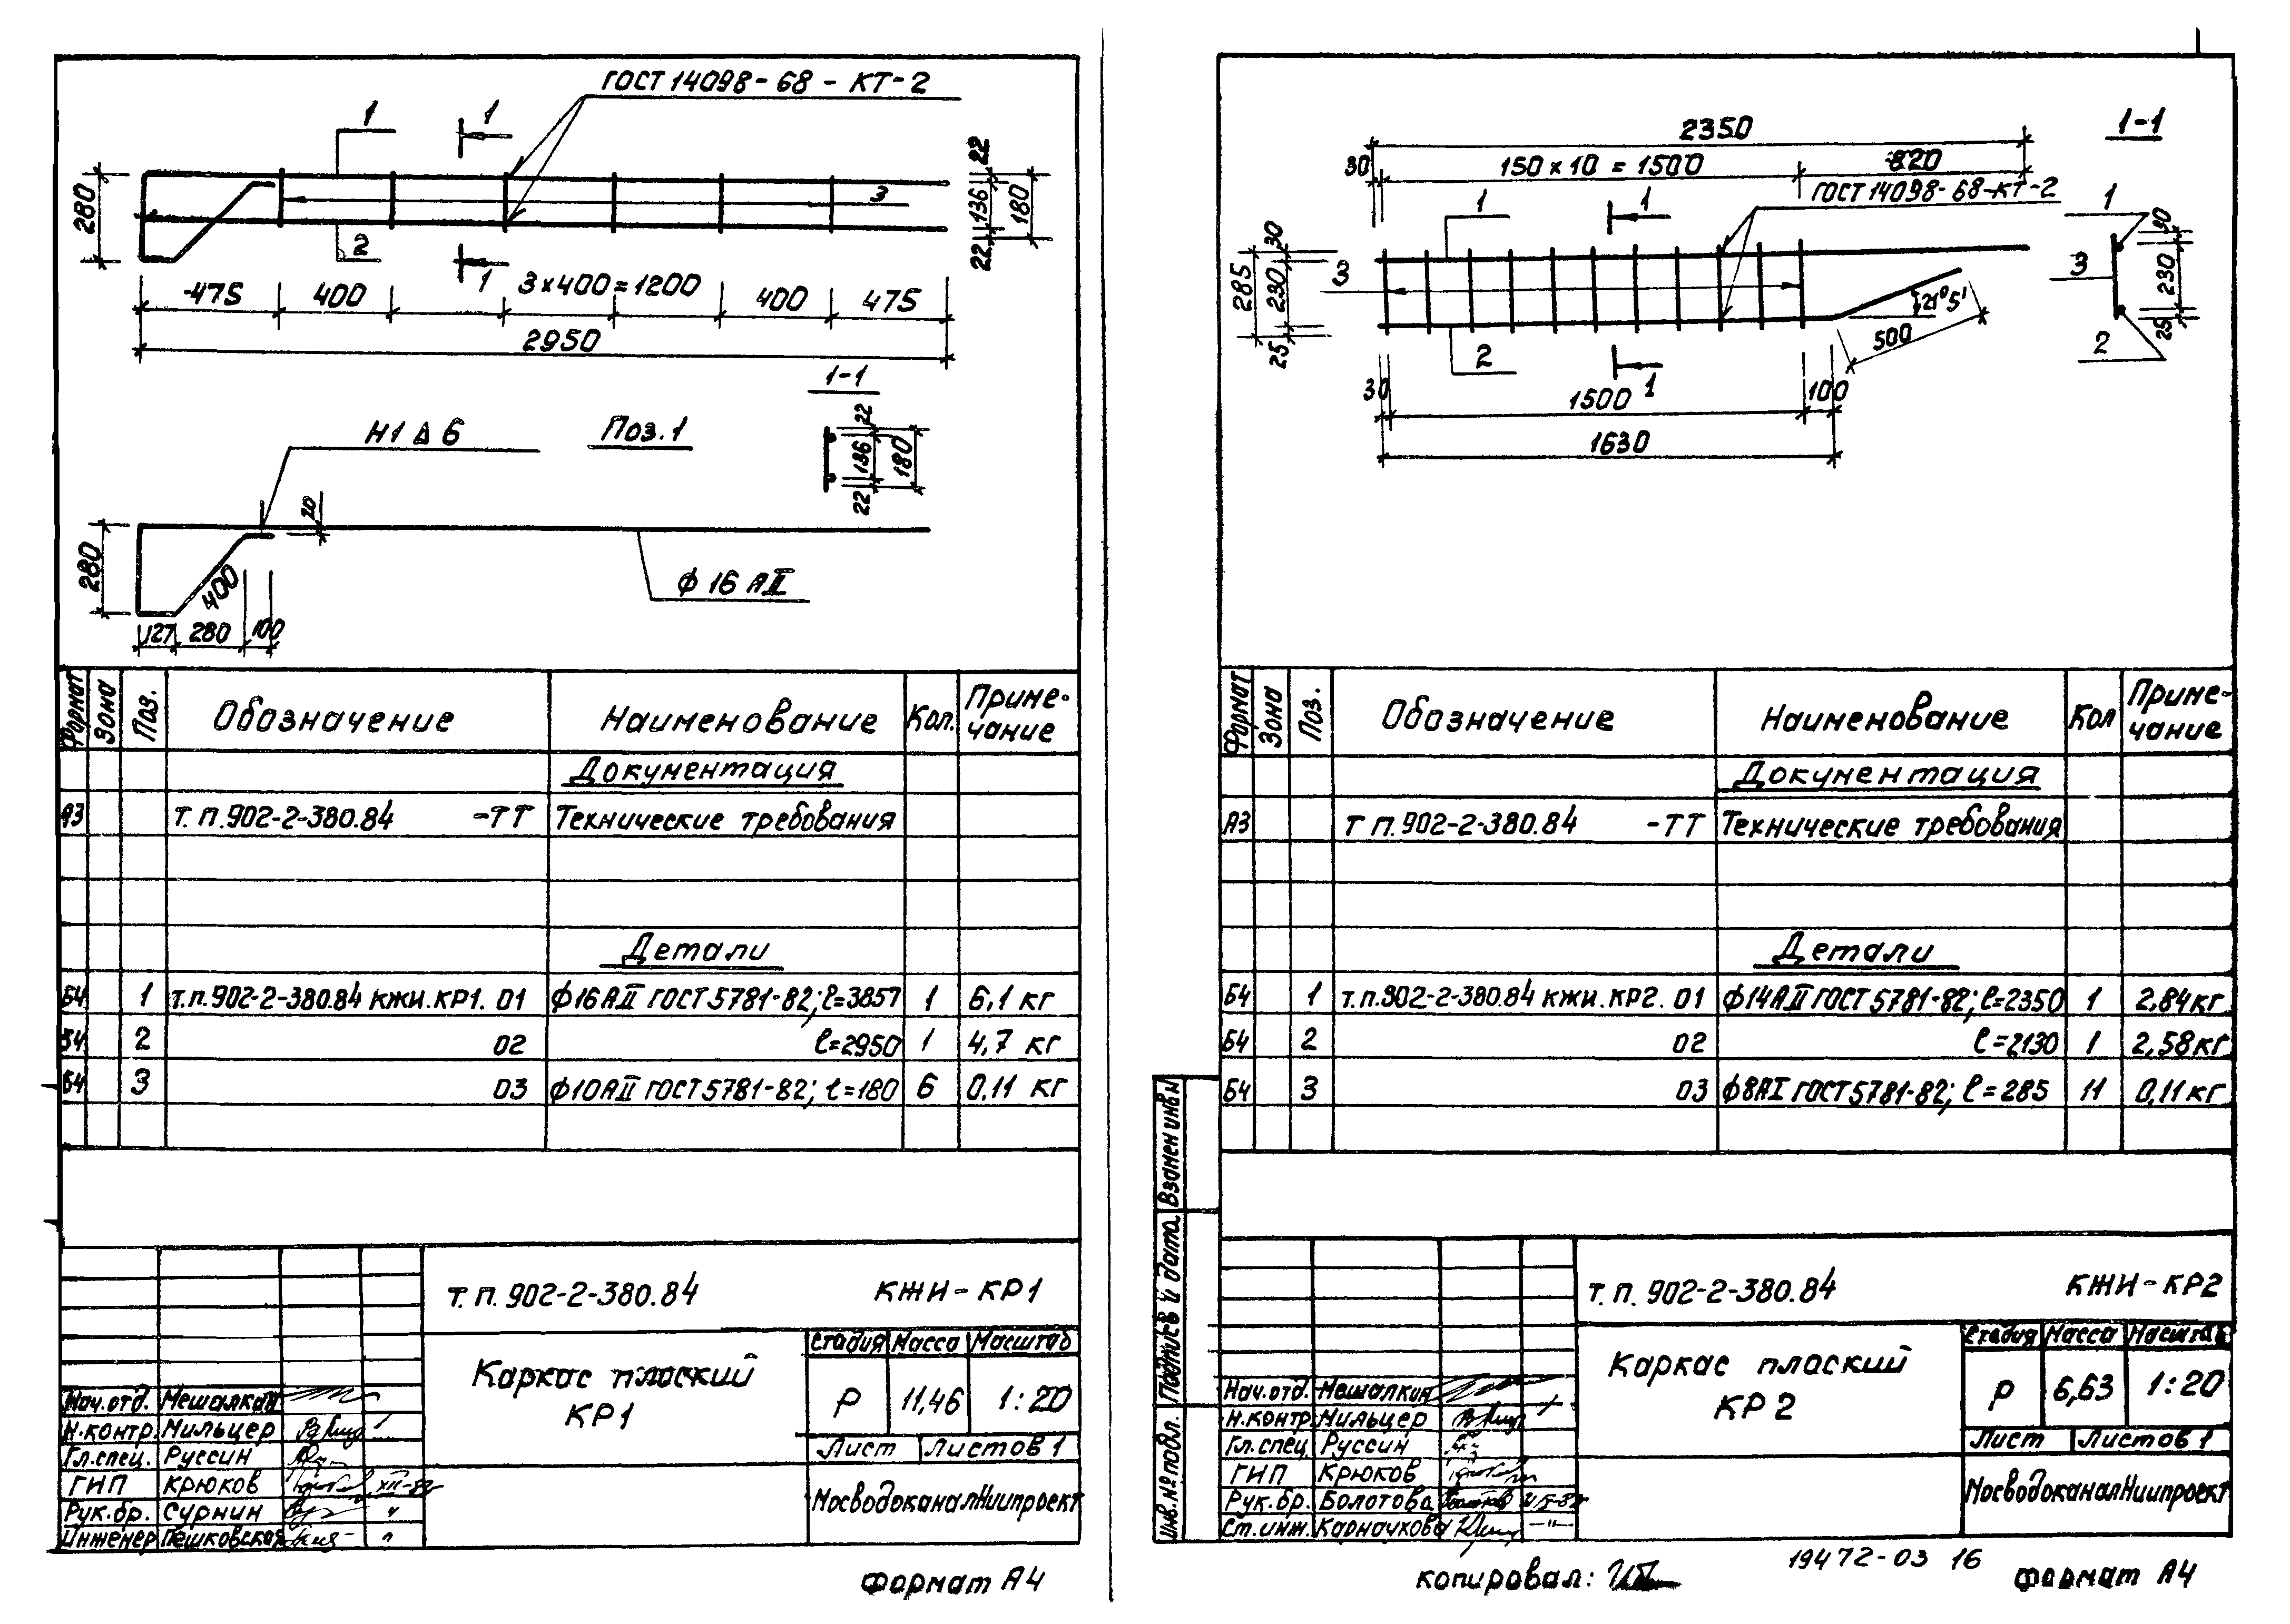 ГОСТ 14098-68-КТ-2
1
1
280
3
22
136
22
180
2
1
475
400
3×400=1200
400
475
2950
1-1
Н1 Δ 6
Поз. 1
22
136
22
180
20
280
400
ф 16 АII
127
280
100
Формат
Зона
Поз.
Обозначение
Наименование
Кол.
Приме-
чание
Документация
А3 т.п.902-2-380.84 -ТТ Технические требования
Детали
Б4 1 т.п.902-2-380.84 КЖИ.КР1. 01 ф16АII ГОСТ 5781-82; ℓ=3857 1 6,1 кг
Б4 2 02 ℓ=2950 1 4,7 кг
Б4 3 03 ф10АII ГОСТ 5781-82; ℓ=180 6 0,11 кг
т.п. 902-2-380.84 КЖИ-КР1
Каркас плоский
КР1
Стадия Масса Масштаб
Р 11,46 1:20
Лист Листов 1
МосводоканалНиипроект
Нач.отд. Мешалкин
Н.контр. Мильцер
Гл.спец. Руссин
ГИП Крюков
Рук.бр. Сурнин "
Инженер Пешковская "
Формат А4
2350
30
150×10=1500
820
ГОСТ 14098-68-КТ-2
1
1
30
285
230
25
3
21°5'
500
2
1
30
1500
100
1630
1-1
1
3
2
30
230
25
Формат
Зона
Поз.
Обозначение
Наименование
Кол
Приме-
чание
Документация
А3 т п.902-2-380.84 -ТТ Технические требования
Детали
Б4 1 т.п.902-2-380.84 КЖИ.КР2. 01 ф14АII ГОСТ 5781-82; ℓ=2350 1 2,84кг
Б4 2 02 ℓ=2130 1 2,58кг
Б4 3 03 ф8АI ГОСТ 5781-82; ℓ=285 11 0,11кг
Инв.№подл.
Подпись и дата
Взамен инв№
т.п. 902-2-380.84 КЖИ-КР2
Каркас плоский
КР2
Стадия Масса Масштаб
Р 6,63 1:20
Лист Листов 1
МосводоканалНиипроект
Нач.отд. Мешалкин
Н.контр Мильцер
Гл.спец Руссин
ГИП Крюков
Рук.бр. Болотова
Ст.инж. Карначкова -"-
копировал:
19472-03 16
формат А4